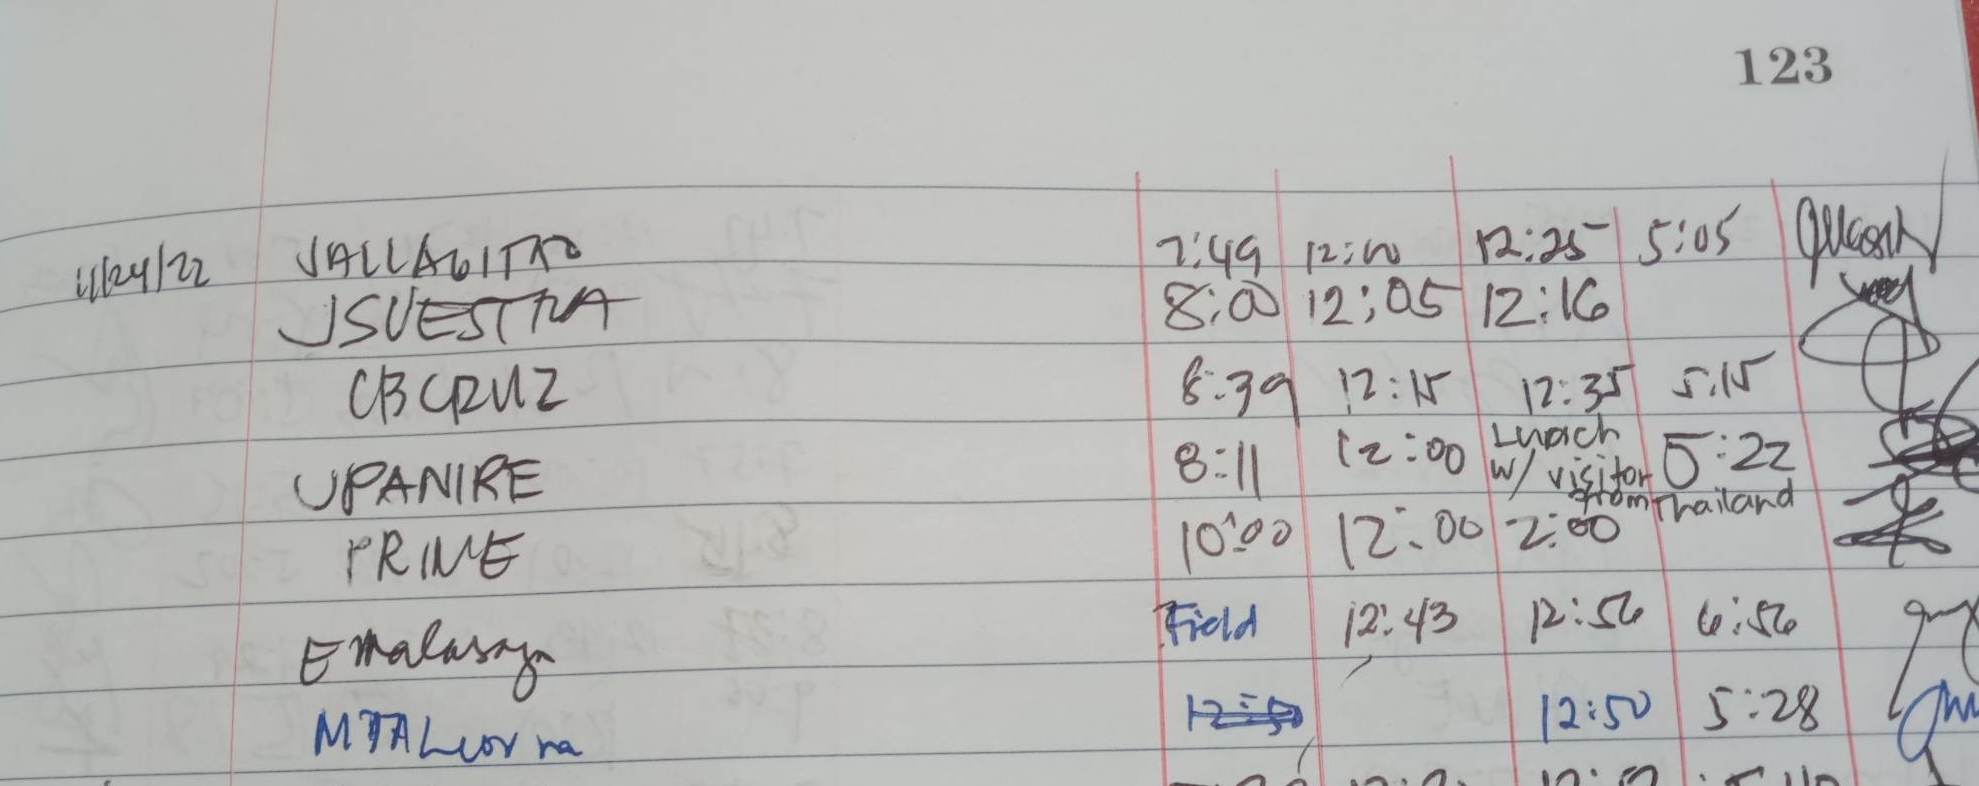 123
11/24/22 7:49 12:25 5:05
JSUESTRA 8:00 12:05 12:16
CBCRUZ 8:39 12:15 12:35 5:15
JPANIRE 8:11 12:00 Lunch w/ visitor from Thailand 5:22
PRIME 10:00 12:00 2:00
Emalasaga Field 12:43 12:56 6:56
12:50 5:28